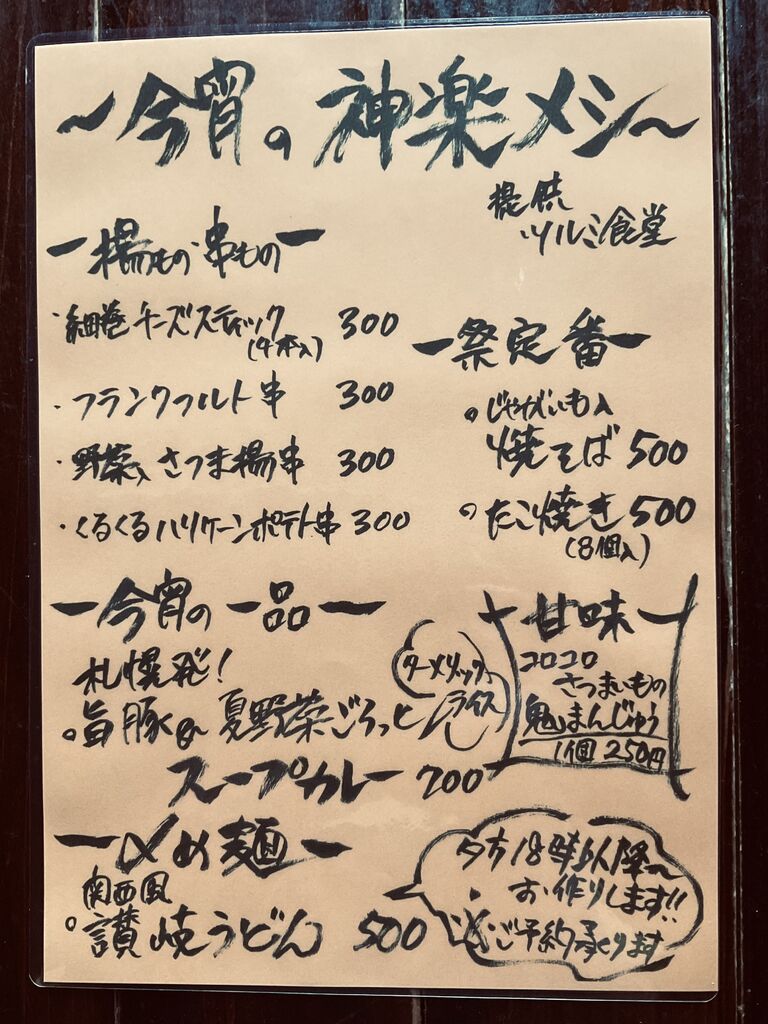 ～今宵の神楽メシ～
提供
ツルミ食堂
ー揚もの 串ものー
・細巻チーズスティック 300
(4本入)
・フランクフルト串 300
・野菜入さつま揚串 300
・くるくるハリケーンポテト串 300
ー祭定番ー
。じゃがいも入
焼そば 500
。たこ焼き 500
(8個入)
ー今宵の一品ー
札幌発！
。旨豚&夏野菜ごろっと
スープカレー 700
ターメリック
ライス
ー甘味ー
コロコロ
さつまいもの
鬼まんじゅう
1個 250円
ー〆め麺ー
関西風
。讃岐うどん 500
夕方18時以降～
お作りします!!
※ご予約承ります